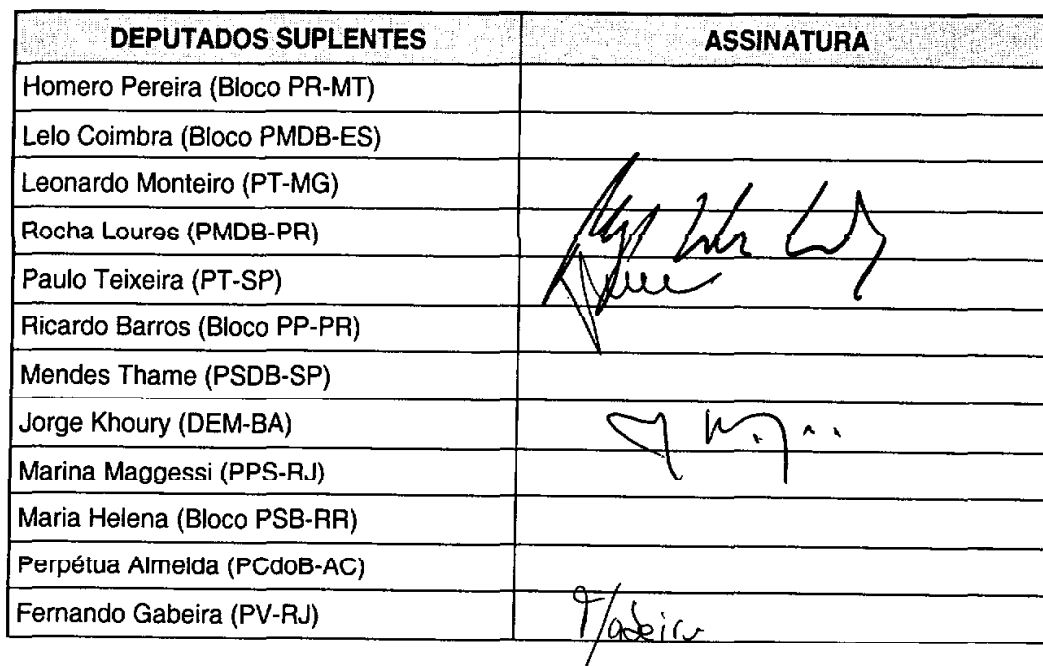 DEPUTADOS SUPLENTES ASSINATURA
Homero Pereira (Bloco PR-MT)
Lelo Coimbra (Bloco PMDB-ES)
Leonardo Monteiro (PT-MG)
Rocha Loures (PMDB-PR)
Paulo Teixeira (PT-SP)
Ricardo Barros (Bloco PP-PR)
Mendes Thame (PSDB-SP)
Jorge Khoury (DEM-BA)
Marina Maggessi (PPS-RJ)
Maria Helena (Bloco PSB-RR)
Perpétua Almeida (PCdoB-AC)
Fernando Gabeira (PV-RJ)